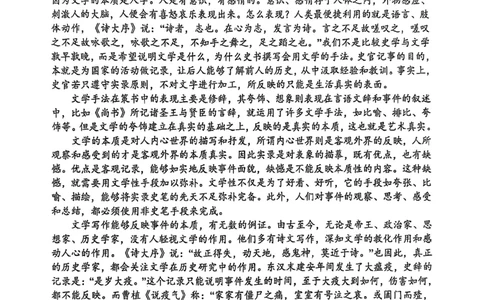 因为文学的本质是人学。人是有意识，有感情的。意识、感情存于人体之内，外物感应、
刺激人的大脑，人便会有喜怒哀乐表现出来。怎么表现？人类最便捷就可利用的就是语言、肢
体动作，《诗大序》说：“诗者，志也。在心为志，发言为诗。言之不足故嗟叹之，嗟叹
之不足故咏歌之，咏歌之不足，不知手之舞之，足之蹈也。”我们不是比较史学与文学
孰早孰晚，而是希望说明文学是什么，为什么史书撰写会用文学的手法。史官记事的目的，
本就是为国家的活动做记录，让后人能够了解前人的历史，从中汲取经验和教训。事实上，
史官若只遵守实录原则，不对文字进行加工，所反映的只能是生活真实的表面。
文学手法在策书中的表现主要是修辞，其夸饰、想象则表现在言语文辞和事件的叙述
中，比如《尚书》所记诸圣王与贤臣的言辞，就运用了许多文学手法，如比喻、排比、夸
饰等。但是文学的夸饰建立在真实的基础之上，反映的是真实的本质，这也就是艺术真实。
文学的本质是对人内心世界的描写和抒发，所谓内心世界则是客观外界的反映，人所
观察和感受到的才是客观外界的本质真实。因此实录是对表象的描摹，既有优点，也有缺
憾。优点是客观记录，能够如实地反映事件面貌，缺憾是不能反映本质性的内容。这种缺
憾，就需要用文学性手段加以弥补。文学性不仅是为了好看、好听，它的手段如夸张、比
喻、描绘，能够将实录史笔的先天不足弥补完备。此外，人们对事件的观察、思考、感受
和总结，都必须使用非史笔手段来完成。
文学写作能够反映事件的本质，有无数的例证。由古至今，无论是帝王、政治家、思
想家、历史学家，没有人轻视文学的作用。他们多有诗文写作，深知文学的教化作用和感
动人心的作用。《诗大序》说：“故正得失，动天地，感鬼神，莫近于诗。”也因此，真正
的历史学家，都会关注文学在历史研究中的作用。东汉末建安年间发生了大瘟疫，史绎的
记录是：“是岁大疫。”这个记录只能说明事件发生的时间，至于大疫大到如何，伤害如何，
都不能反映。而曹植《说疫气》称：“家家有僵尸之痛，室室有号泣之哀。或阖门而殪，